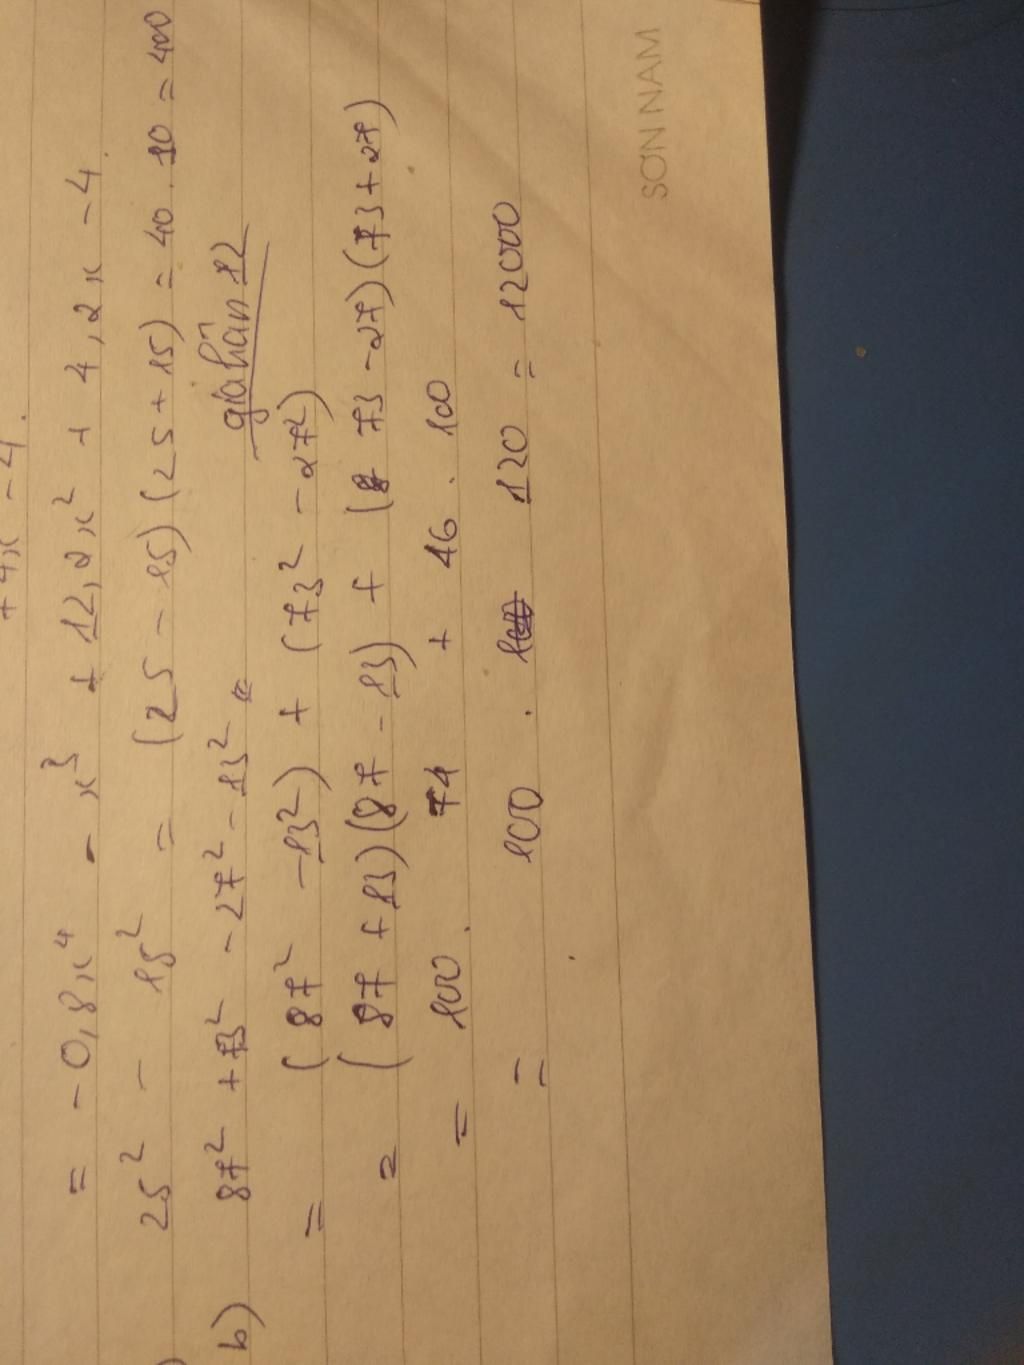 + 4x - 4.
= - 0,8x⁴ - x³ + 12,2x² + 4,2x - 4.
25² - 15² = (25 - 15) (25 + 15) = 40 . 10 = 400
b) 87² + 73² - 27² - 13²
= (87² - 13²) + (73² - 27²)
= (87 + 13) (87 - 13) + (73 - 27) (73 + 27)
= 100 . 74 + 46 . 100
= 100 . 120 = 12000
SƠN NAM